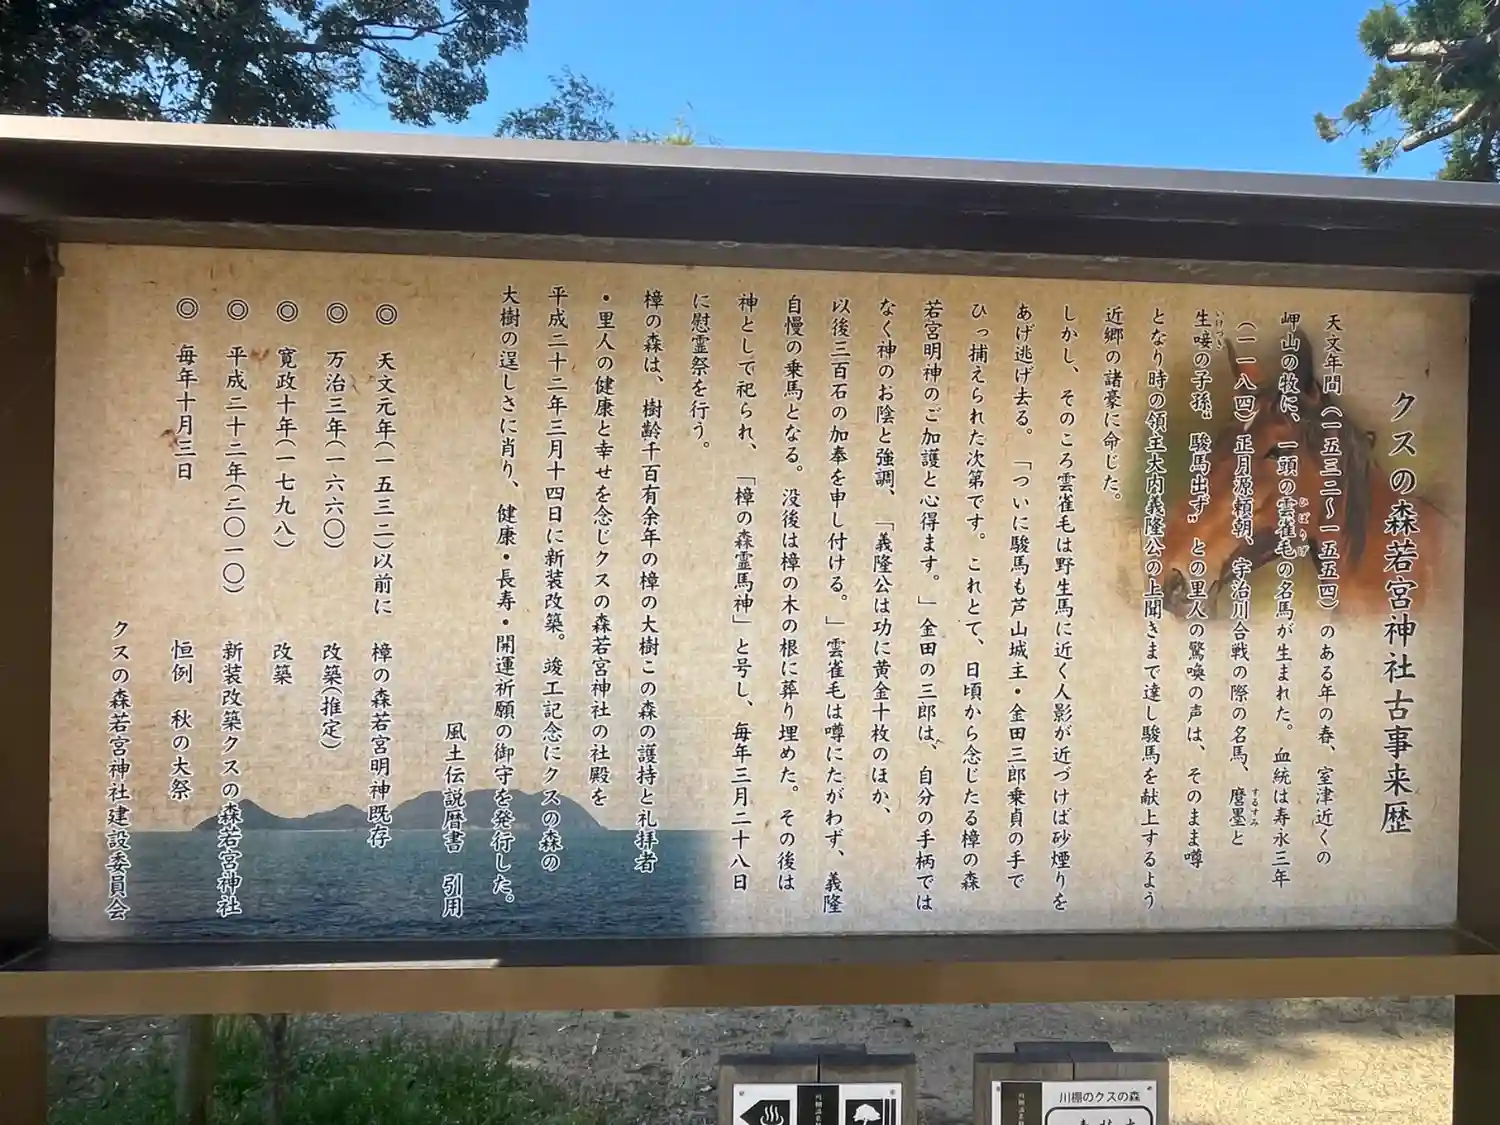 クスの森若宮神社古事来歴
天文年間(一五三二~一五五四)のある年の春、室津近くの
岬山の牧に、一頭の雲雀毛の名馬が生まれた。血統は寿永三年
ひばりげ
(一一八四)正月源頼朝、宇治川合戦の際の名馬、磨墨と
するすみ
生唼の子孫〝駿馬出ず〟との里人の驚喚の声は、そのまま噂
いけづき
となり時の領主大内義隆公の上聞きまで達し駿馬を献上するよう
近郷の諸豪に命じた。
しかし、そのころ雲雀毛は野生馬に近く人影が近づけば砂煙りを
あげ逃げ去る。「ついに駿馬も芦山城主・金田三郎乗貞の手で
ひっ捕えられた次第です。これとて、日頃から念じたる樟の森
若宮明神のご加護と心得ます。」金田の三郎は、自分の手柄では
なく神のお陰と強調、「義隆公は功に黄金十枚のほか、
以後三百石の加奉を申し付ける。」雲雀毛は噂にたがわず、義隆
自慢の乗馬となる。没後は樟の木の根に葬り埋めた。その後は
神として祀られ、「樟の森霊馬神」と号し、毎年三月二十八日
に慰霊祭を行う。
樟の森は、樹齢千百有余年の樟の大樹この森の護持と礼拝者
・里人の健康と幸せを念じクスの森若宮神社の社殿を
平成二十二年三月十四日に新装改築。竣工記念にクスの森の
大樹の逞しさに肖り、健康・長寿・開運祈願の御守を発行した。
風土伝説暦書 引用
◎ 天文元年(一五三二)以前に 樟の森若宮明神既存
◎ 万治三年(一六六〇) 改築(推定)
◎ 寛政十年(一七九八) 改築
◎ 平成二十二年(二〇一〇) 新装改築クスの森若宮神社
◎ 毎年十月三日 恒例 秋の大祭
クスの森若宮神社建設委員会
川棚のクスの森